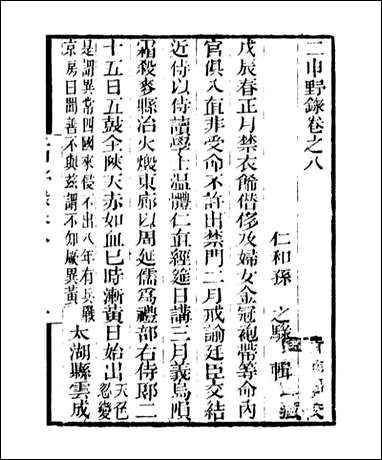 二申野錄卷之八
仁和孫 之騄 輯
戊辰春正月禁衣飾僭侈及婦女金冠袍帶等命內
官俱入直非受命不許出禁門二月戒諭廷臣交結
近侍以侍讀學士溫體仁直經筵日講三月義烏隕
霜殺麥縣治火燬東廊以周延儒爲禮部右侍郎二
十五日五鼓全陝天赤如血巳時漸黃日始出天色忽變
是謂異常四國來侵不出八年有兵戰
京房曰聞善不與茲謂不知厥異黃 太湖縣雲成